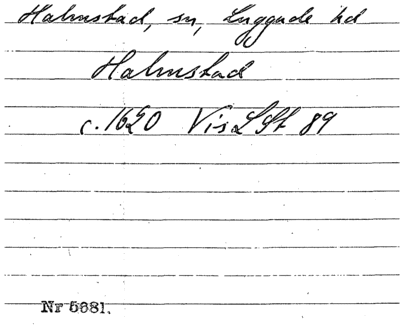 Halmstad, sn, Luggude hd
Halmstad
c. 1620 Vis LSt 89
Nr 5681.